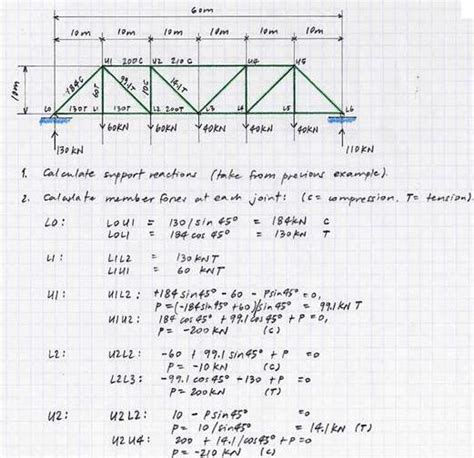 60m
10m 10m 10m 10m 10m 10m
U1 200C U2 210C U4 U5
10m
-184C 60T 99.1T 10C 14.1T
L0 130T L1 130T L2 200T L3 L4 L5 L6
60KN 60KN 40KN 40KN 40KN
130KN 110KN
1. Calculate support reactions (take from previous example).
2. Calculate member forces at each joint: (C = compression, T = tension).
L0: L0U1 = 130/sin 45° = 184KN C
L0L1 = 184 cos 45° = 130KN T
L1: L1L2 = 130KNT
L1U1 = 60 KNT
U1: U1L2: +184sin45° - 60 - Psin45° = 0,
P = (-184sin45° + 60)/sin45° = 99.1KN T
U1U2: 184 cos 45° + 99.1cos 45° + P = 0,
P = -200KN (C)
L2: U2L2: -60 + 99.1sin45° + P = 0
P = -10KN (C)
L2L3: -99.1cos45° - 130 + P = 0
P = 200KN (T)
U2: U2L2: 10 - Psin45° = 0
P = 10/sin45° = 14.1KN (T)
U2U4: 200 + 14.1/cos45° + P = 0
P = -210KN (C)